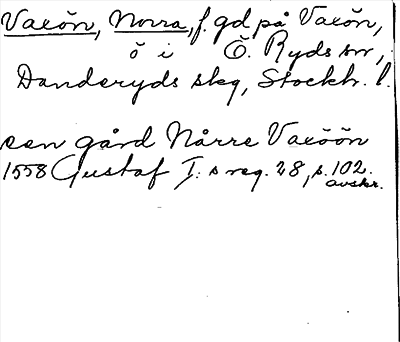 Vaxön, Norra, f. gd på Vaxön,
ö i Ö. Ryds sn,
Danderyds skg, Stockh. l.
een gård Nårre Vaxöön
1558 Gustaf I:s reg. 28, s. 102.
avskr.